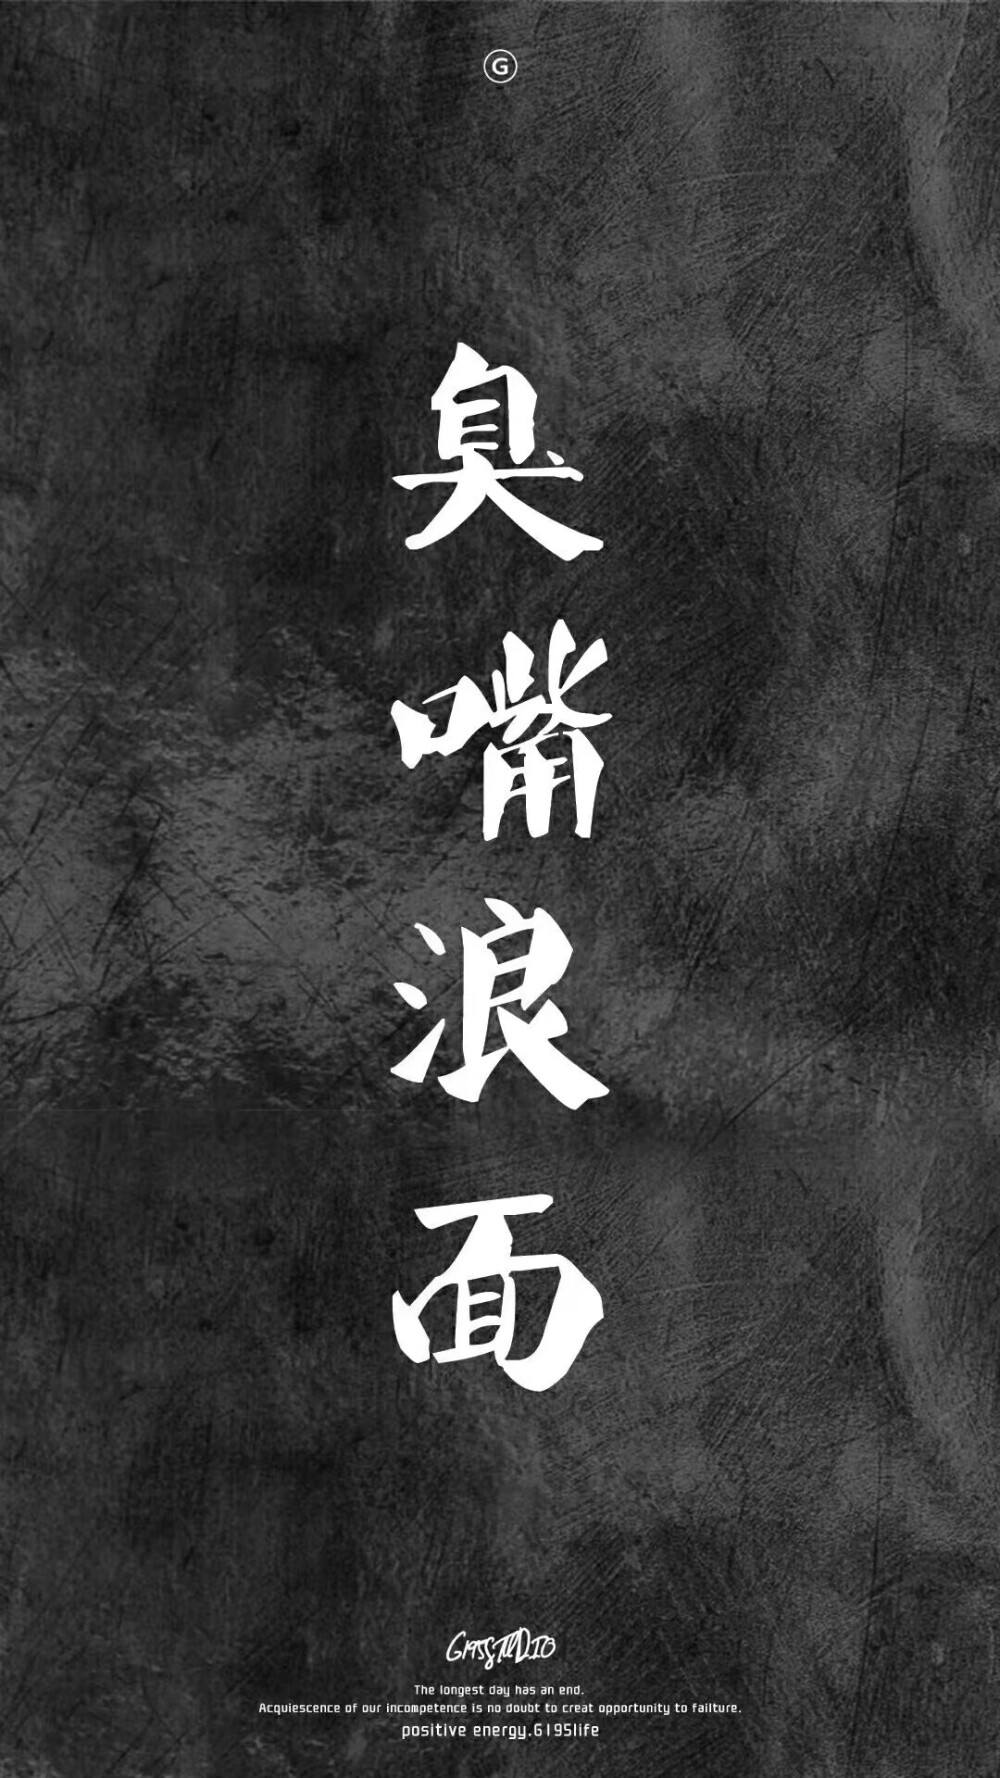 G
臭嘴浪面
G195STUDIO
The longest day has an end.
Acquiescence of our incompetence is no doubt to creat opportunity to failture.
positive energy.6195life